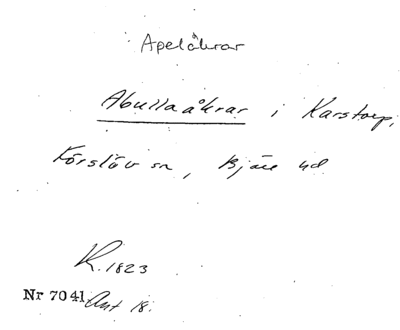 Apelåkrar
Abullaåkrar i Karstorp,
Förslöv sn, Bjäre hd
R. 1823
Nr 7041 Akt 18.